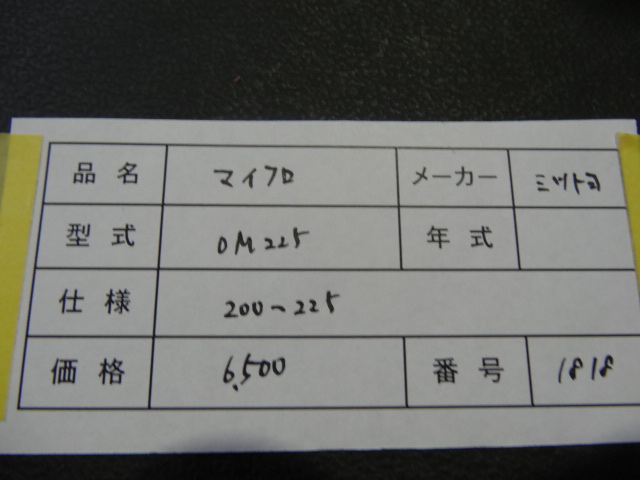 品名 マイフロ メーカー ミツトヨ
型式 OM225 年式
仕様 200~225
価格 6,500 番号 1818